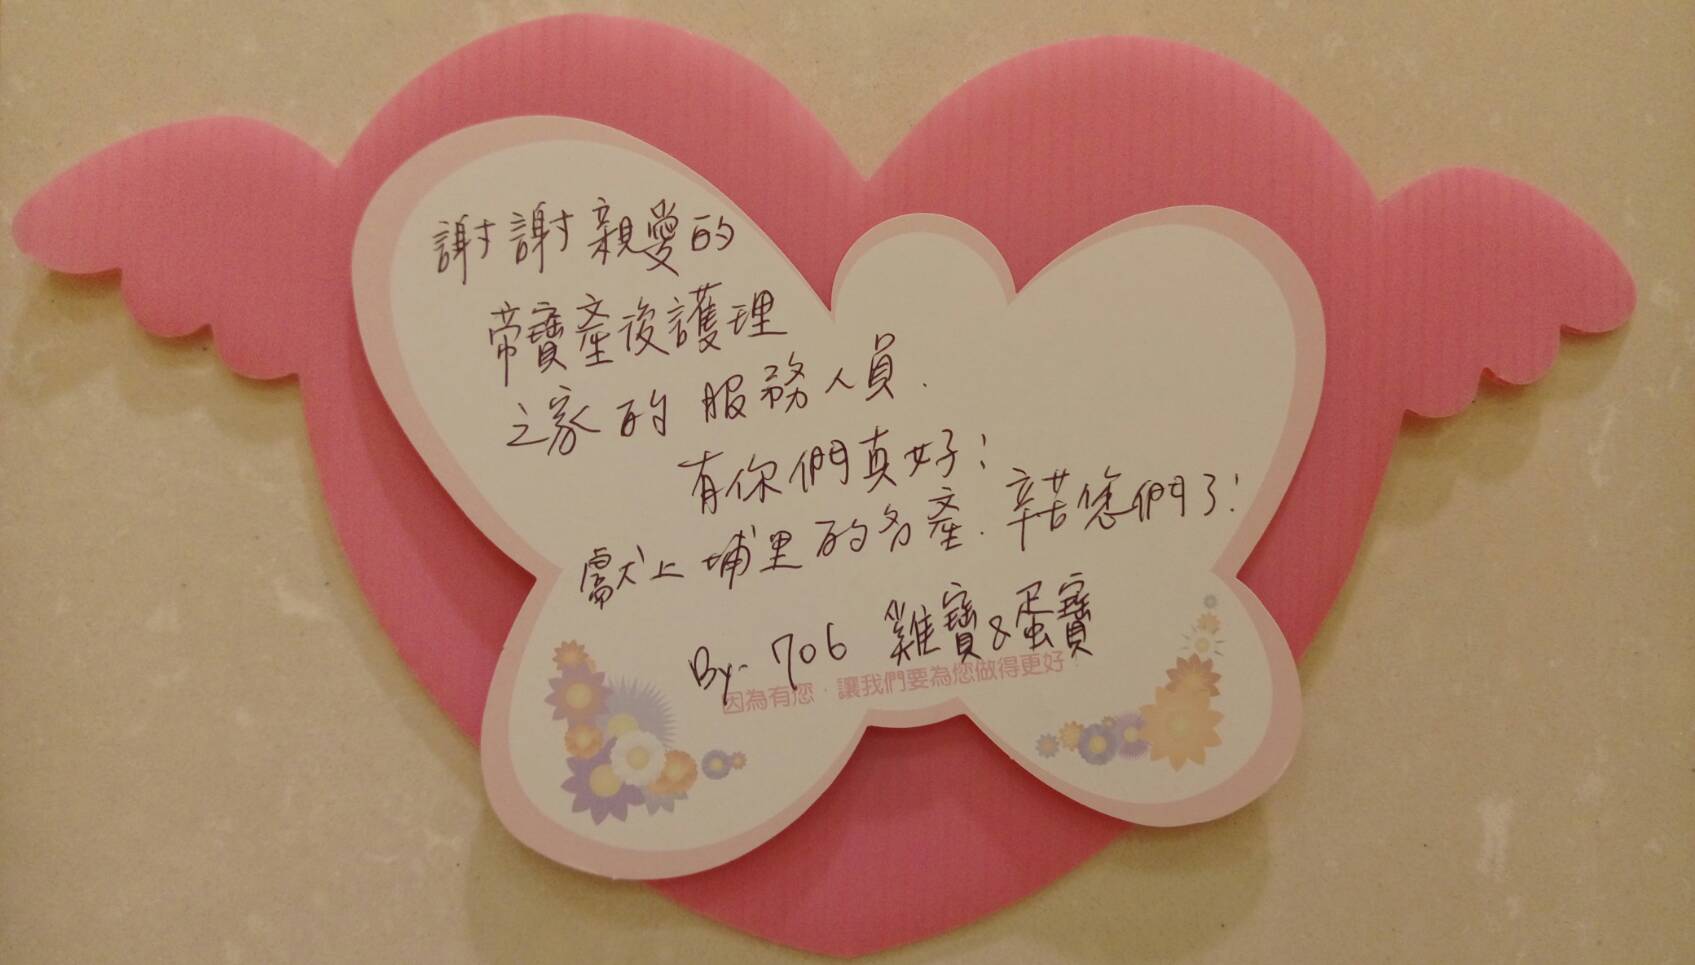 謝謝親愛的
帶寶產後護理
之家的服務人員.
有你們真好!
獻上埔里的名產.辛苦您們了!
By. 706 雞寶&蛋寶
因為有您‧讓我們要為您做得更好!